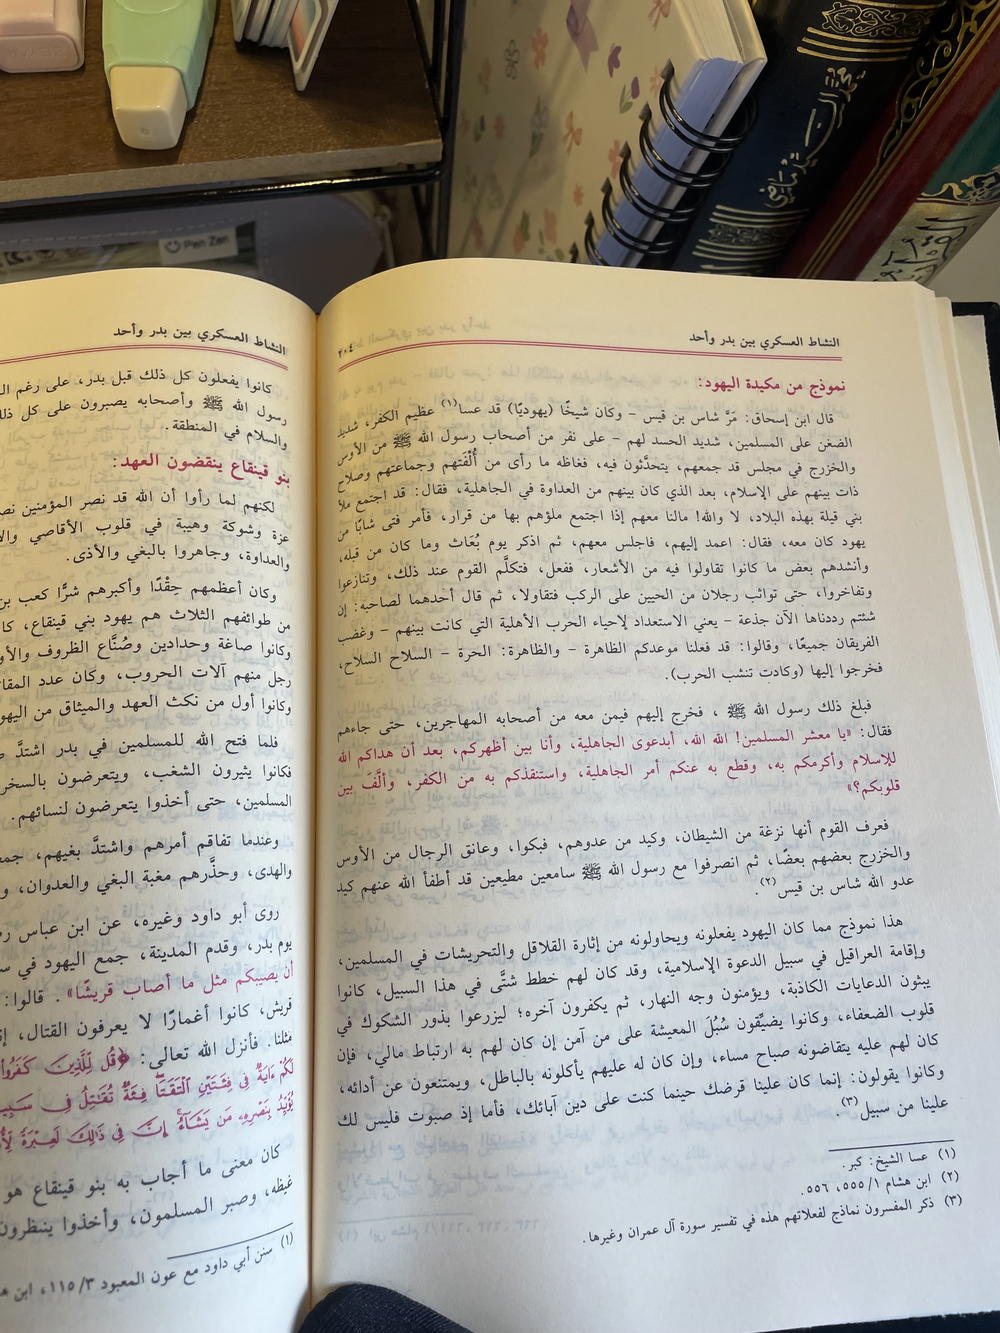 Pen Zen
محمد السيد رياض
النشاط العسكري بين بدر وأحد
٤٠٢
نموذج من مكيدة اليهود:
قال ابن إسحاق: مَرَّ شاس بن قيس – وكان شيخًا (يهوديًا) قد عسا(١) عظيم الكفر، شديد
الضغن على المسلمين، شديد الحسد لهم – على نفر من أصحاب رسول الله ﷺ من الأوس
والخزرج في مجلس قد جمعهم، يتحدَّثون فيه، فغاظه ما رأى من أُلْفَتهم وجماعتهم وصلاح
ذات بينهم على الإسلام، بعد الذي كان بينهم من العداوة في الجاهلية، فقال: قد اجتمع ملأ
بني قيلة بهذه البلاد، لا والله! مالنا معهم إذا اجتمع ملؤهم بها من قرار، فأمر فتى شابًا من
يهود كان معه، فقال: اعمد إليهم، فاجلس معهم، ثم اذكر يوم بُعَاث وما كان من قبله،
وأنشدهم بعض ما كانوا تقاولوا فيه من الأشعار، ففعل، فتكلَّم القوم عند ذلك، وتنازعوا
وتفاخروا، حتى تواثب رجلان من الحيين على الركب فتقاولا، ثم قال أحدهما لصاحبه: إن
شئتم رددناها الآن جذعة – يعني الاستعداد لإحياء الحرب الأهلية التي كانت بينهم – وغضب
الفريقان جميعًا، وقالوا: قد فعلنا موعدكم الظاهرة – والظاهرة: الحرة – السلاح السلاح،
فخرجوا إليها (وكادت تنشب الحرب).
فبلغ ذلك رسول الله ﷺ ، فخرج إليهم فيمن معه من أصحابه المهاجرين، حتى جاءهم
فقال: «يا معشر المسلمين! الله الله، أبدعوى الجاهلية، وأنا بين أظهركم، بعد أن هداكم الله
للإسلام وأكرمكم به، وقطع به عنكم أمر الجاهلية، واستنقذكم به من الكفر، وألَّفَ بين
قلوبكم؟»
فعرف القوم أنها نزغة من الشيطان، وكيد من عدوهم، فبكوا، وعانق الرجال من الأوس
والخزرج بعضهم بعضًا، ثم انصرفوا مع رسول الله ﷺ سامعين مطيعين قد أطفأ الله عنهم كيد
عدو الله شاس بن قيس(٢).
هذا نموذج مما كان اليهود يفعلونه ويحاولونه من إثارة القلاقل والتحريشات في المسلمين،
وإقامة العراقيل في سبيل الدعوة الإسلامية، وقد كان لهم خطط شتَّى في هذا السبيل، كانوا
يبثون الدعايات الكاذبة، ويؤمنون وجه النهار، ثم يكفرون آخره؛ ليزرعوا بذور الشكوك في
قلوب الضعفاء، وكانوا يضيِّقون سُبُلَ المعيشة على من آمن إن كان لهم به ارتباط مالي، فإن
كان لهم عليه يتقاضونه صباح مساء، وإن كان له عليهم يأكلونه بالباطل، ويمتنعون عن أدائه،
وكانوا يقولون: إنما كان علينا قرضك حينما كنت على دين آبائك، فأما إذ صبوت فليس لك
علينا من سبيل(٣).
(١) عسا الشيخ: كبر.
(٢) ابن هشام ٥٥٥/١، ٥٥٦.
(٣) ذكر المفسرون نماذج لفعلاتهم هذه في تفسير سورة آل عمران وغيرها.
النشاط العسكري بين بدر وأحد
كانوا يفعلون كل ذلك قبل بدر، على رغم
رسول الله ﷺ وأصحابه يصبرون على كل
والسلام في المنطقة.
بنو قينقاع ينقضون العهد:
لكنهم لما رأوا أن الله قد نصر المؤمنين
عزة وشوكة وهيبة في قلوب الأقاصي
والعداوة، وجاهروا بالبغي والأذى.
وكان أعظمهم حِقْدًا وأكبرهم شرًّا كعب
من طوائفهم الثلاث هم يهود بني قينقاع،
وكانوا صاغة وحدادين وصُنَّاع الظروف
رجل منهم آلات الحروب، وكان عدد
وكانوا أول من نكث العهد والميثاق من
فلما فتح الله للمسلمين في بدر اشتدَّ
فكانوا يثيرون الشغب، ويتعرضون
المسلمين، حتى أخذوا يتعرضون لنسائهم.
وعندما تفاقم أمرهم واشتدَّ بغيهم،
والهدى، وحذَّرهم مغبة البغي والعدوان،
روى أبو داود وغيره، عن ابن عباس
يوم بدر، وقدم المدينة، جمع اليهود في
أن يصيبكم مثل ما أصاب قريشًا» . قالوا:
قريش، كانوا أغمارًا لا يعرفون القتال،
مثلنا. فأنزل الله تعالى: ﴿قُل لِّلَّذِينَ كَفَرُوا
لَكُمْ ءَايَةٌ فِى فِئَتَيْنِ ٱلْتَقَتَا فِئَةٌ تُقَٰتِلُ فِى
يُؤَيِّدُ بِنَصْرِهِۦ مَن يَشَآءُ إِنَّ فِى ذَٰلِكَ لَعِبْرَةً
كان معنى ما أجاب به بنو قينقاع هو
غيظه، وصبر المسلمون، وأخذوا ينظرون
(١) سنن أبي داود مع عون المعبود ١١٥/٣، ابن